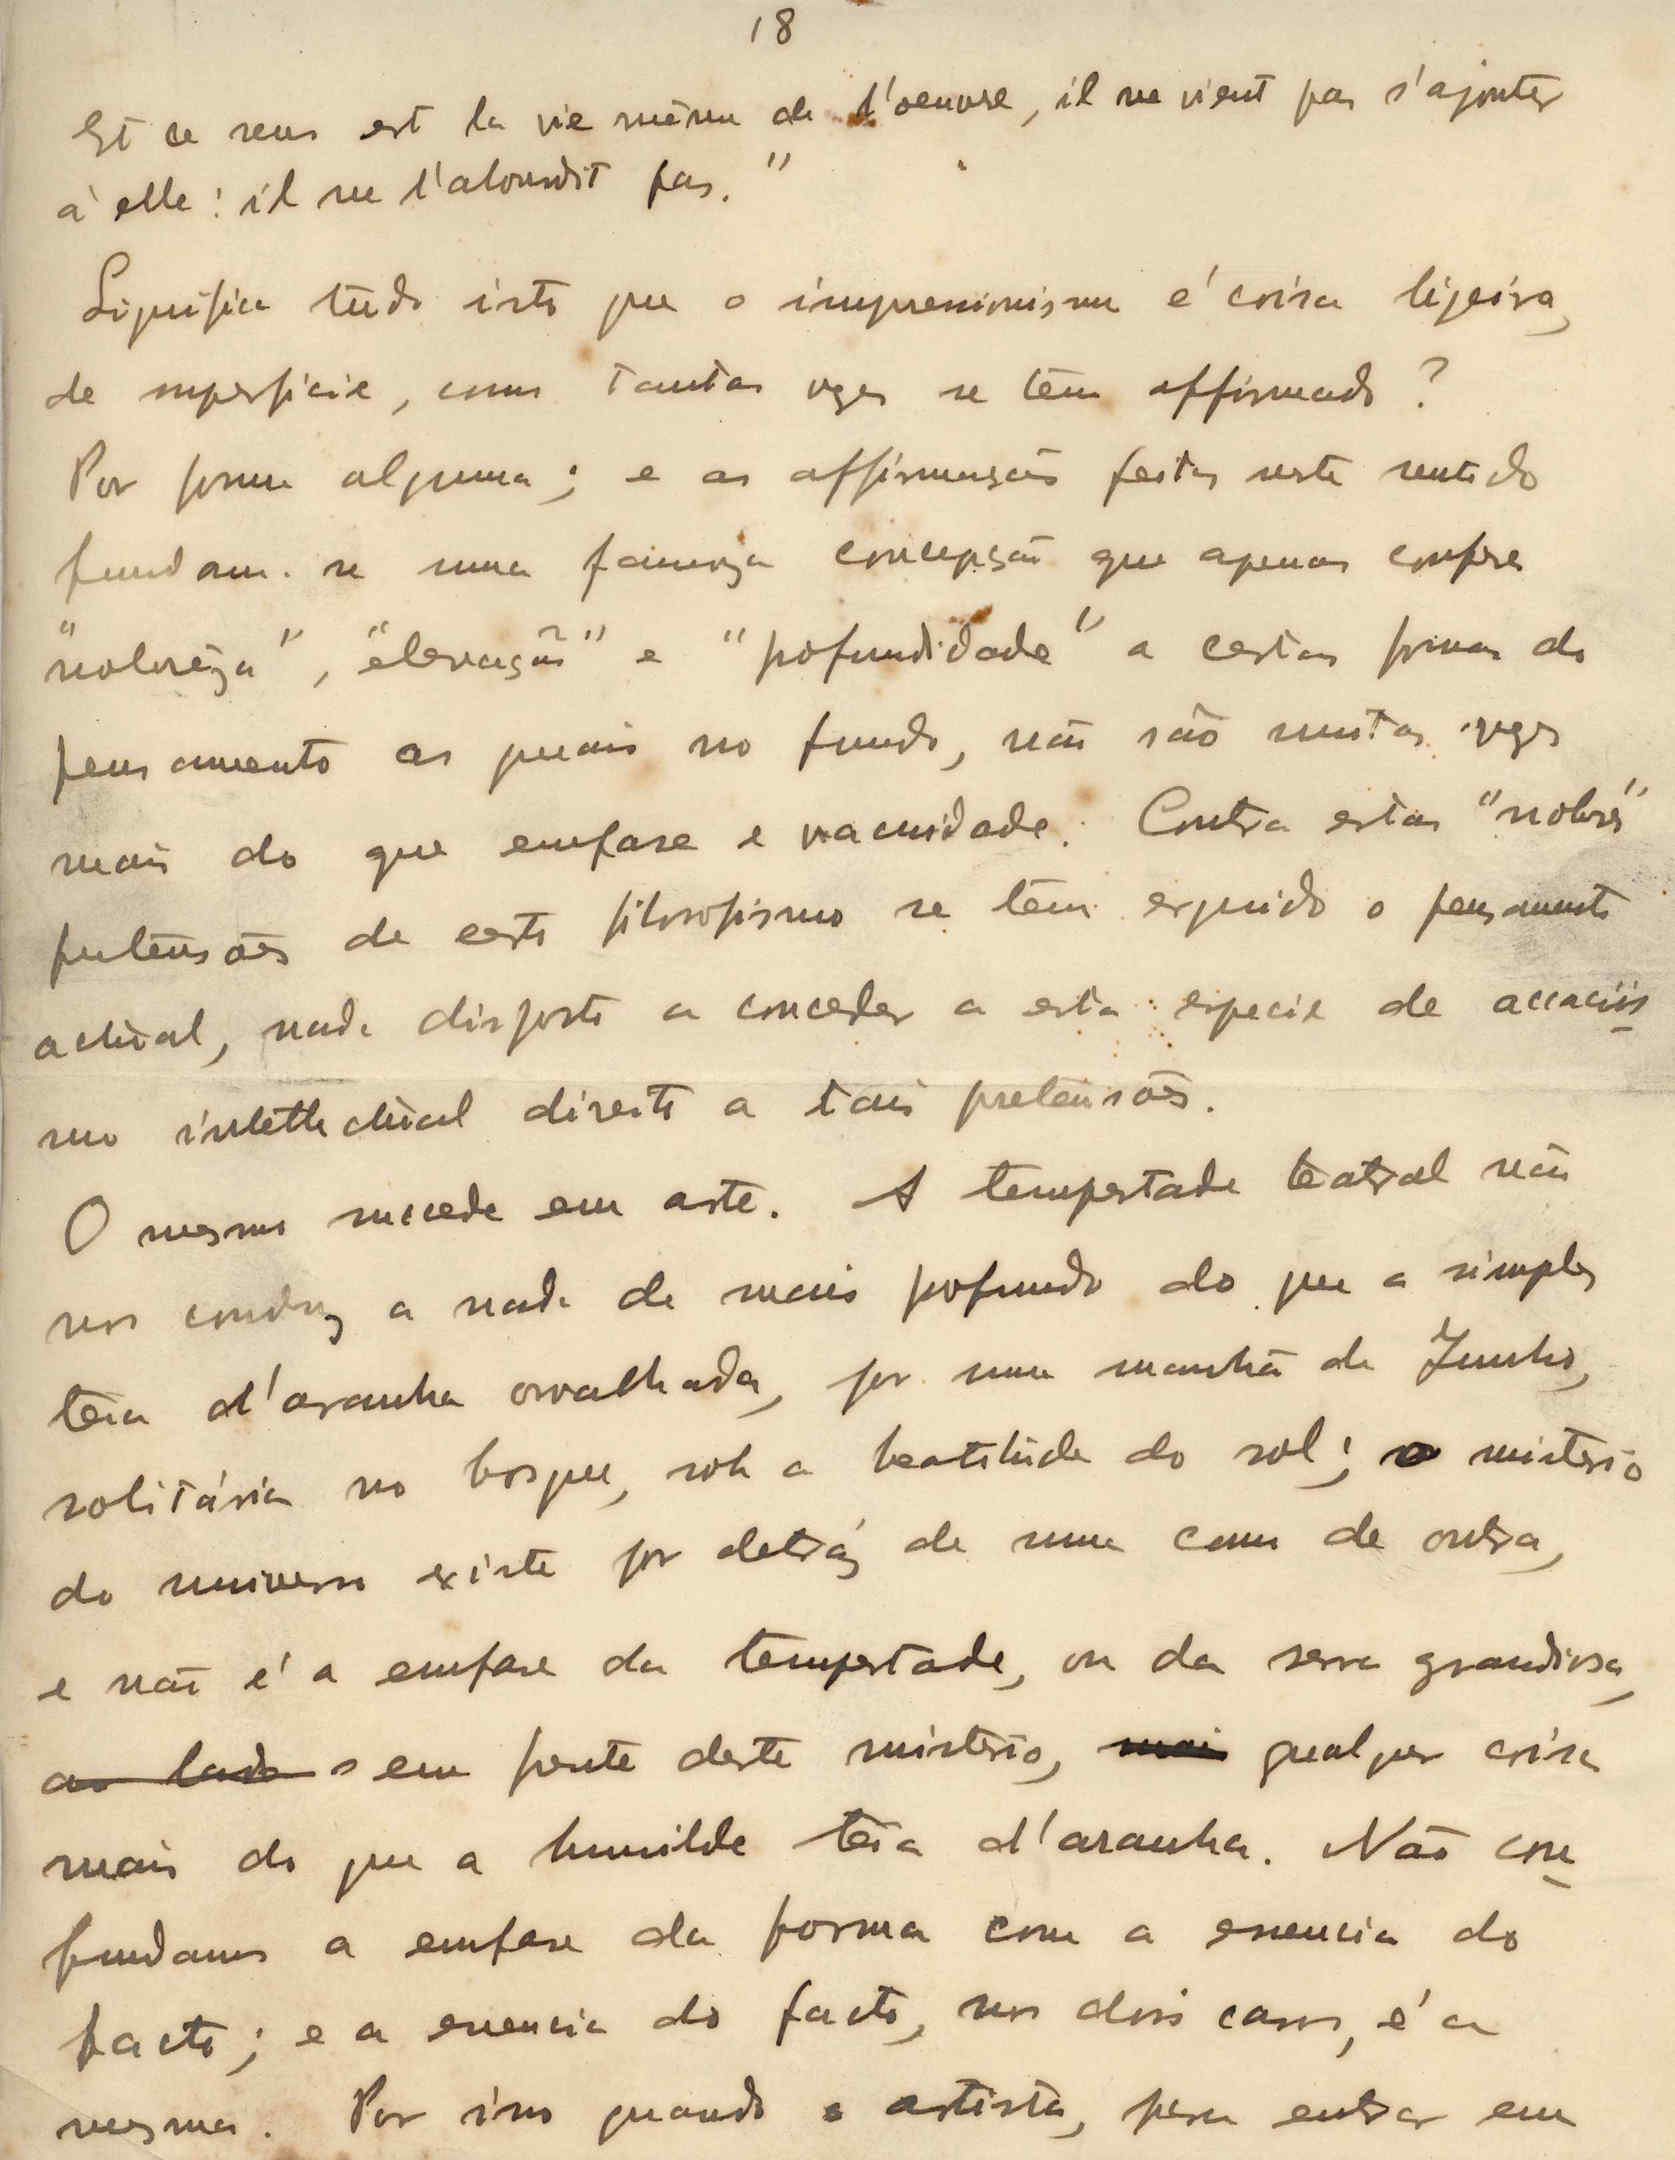 18
Et ce sens est la vie même de l'oeuvre, il ne vient pas s'ajouter
à elle: il ne l'alourdit pas."
Significa tudo isto que o impressionismo é coisa ligeira,
de superficie, como tantas vezes se têm affirmado?
Por forma alguma; e as affirmações feitas neste sentido
fundam-se numa concepção que apenas confere
"nobreza", "elevação" e "profundidade" a certas formas do
pensamento as quais no fundo, não são muitas vezes
mais do que emfase e vacuidade. Contra estas "nobres"
pretensões de certo filosofismo se têm erguido o pensamento
actual, nada disposto a conceder a esta especie de accaciis-
mo intellectual direito a tais pretensões.
O mesmo succede em arte. A tempestade teatral não
nos conduz a nada de mais profundo do que a simples
teia d'aranha orvalhada, por uma manhã de Junho,
solitária no bosque, sob a beatitude do sol; o misterio
do universo existe por detrás de uma como de outra,
e não é a emfase da tempestade, ou da serra grandiosa,
ao lado em frente deste misterio, mais qualquer coisa
mais do que a humilde teia d'aranha. Não con-
fundamos a emfase da forma com a essencia do
facto; e a essencia do facto, nos dois casos, é a
mesma. Por isso quando o artista, para entrar em